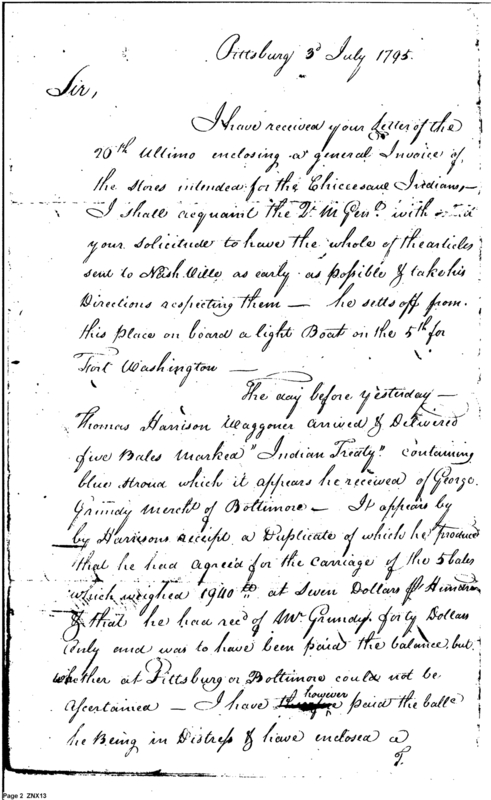 Pittsburg 3d July 1795.
Sir,
I have received your Letter of the
26th Ultimo enclosing a general Invoice of
the stores intended for the Chiccesaw Indians,—
I shall acquaint the Qr M Genl with
your solicitude to have the whole of the articles
sent to Nash Ville as early as possible & take his
Directions respecting them — he setts off from
this place on board a light Boat on the 5th for
Fort Washington —
The day before yesterday —
Thomas Harrison Waggoner arrived & Delivered
five Bales marked "Indian Treaty" containing
blue stroud which it appears he received of George
Grundy Mercht of Boltimore — It appears by
by Harrisons receipt a Duplicate of which he produced
that he had agreed for the carriage of the 5 bales
which weighed 1940 lb at Seven Dollars Hundred
& that he had recd of Mr Grundy forty Dollars
only and was to have been paid the balance but
whether at Pittsburg or Boltimore could not be
ascertained — I have however paid the balle
he Being in Distress & have enclosed a
Page 2 ZNX13